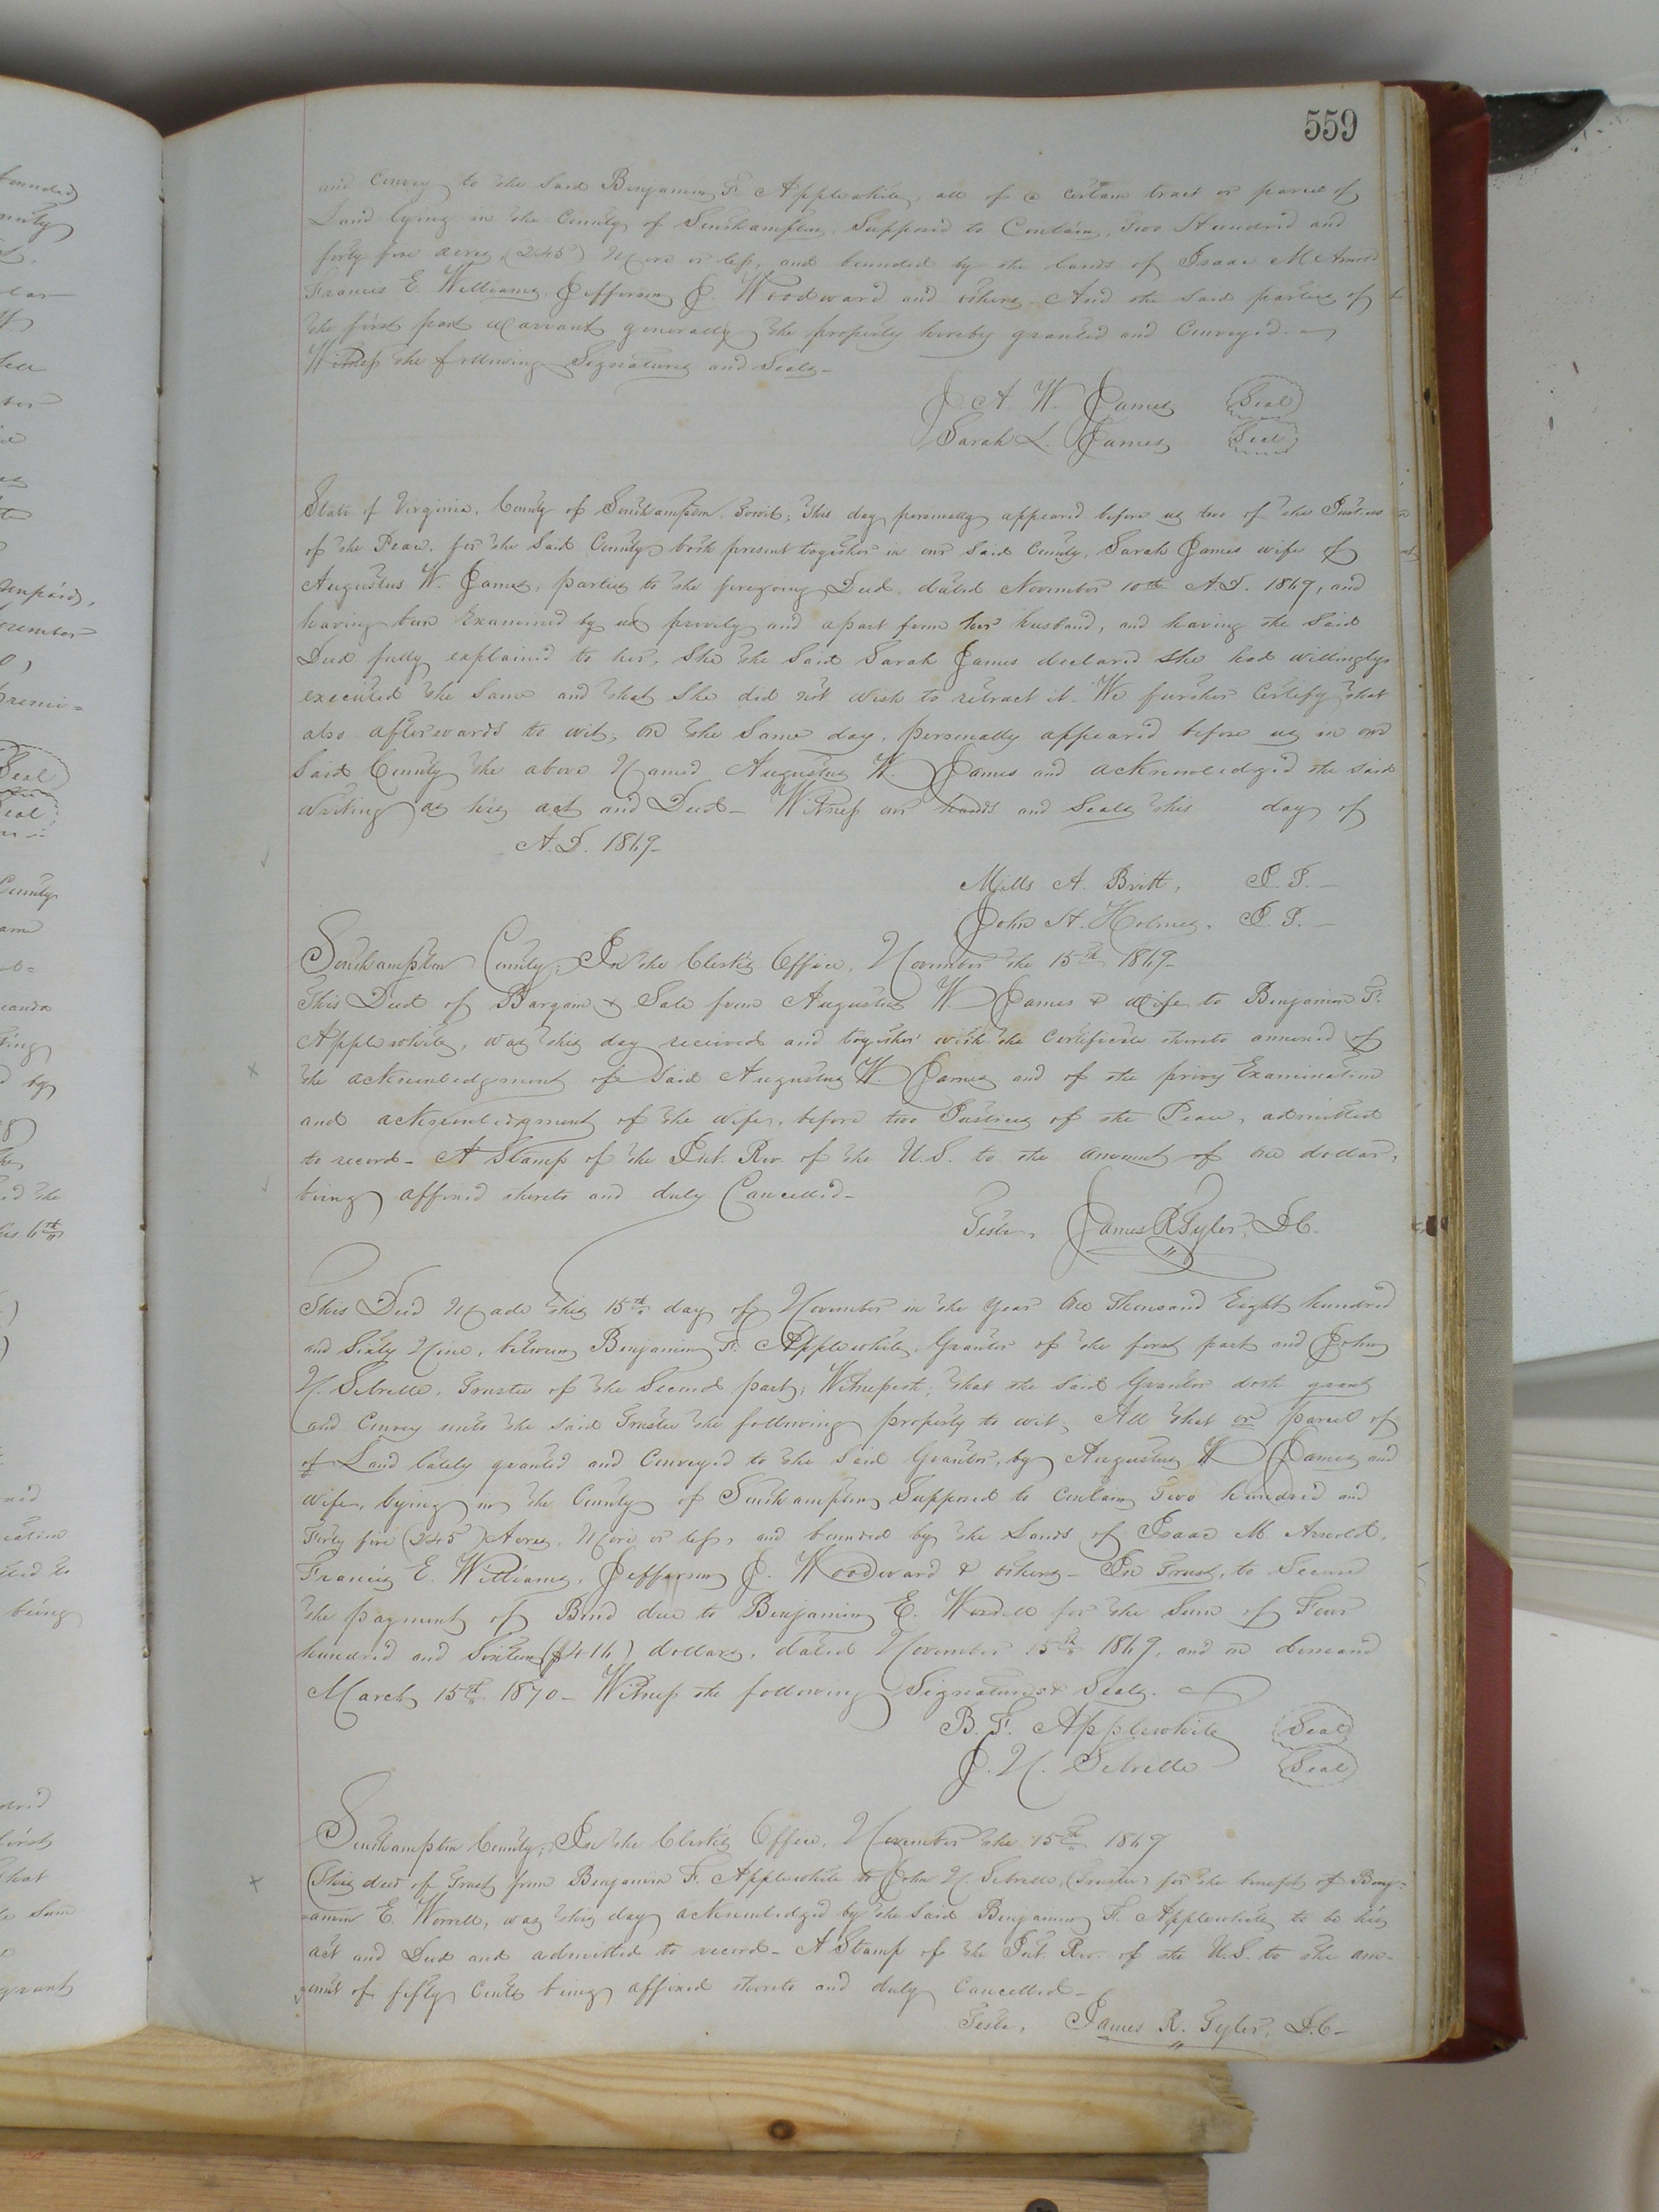 559
and Convey to the said Benjamin F. Applewhite, all of a certain tract or parcel of
Land lying in the County of Southampton, Supposed to Contain, Two Hundred and
forty five acres, (245) More or less, and bounded by the lands of Isaac M Arnold
Francis E. Williams, Jefferson J. Woodward and others. And the said parties of
the first part Warrant generally the property hereby granted and Conveyed.
Witness the following Signatures and Seals-
J. A. W. James Seal
Sarah L. James Seal
State of Virginia, County of Southampton, towit; This day personally appeared before us two of the Justices
of the Peace, for the Said County both present together in our Said County, Sarah James wife of
Augustus W. James, parties to the foregoing Deed, dated November 10th A.D. 1869, and
having been Examined by us privily and apart from her husband, and having the Said
Deed fully explained to her, She the Said Sarah James declared She had willingly
executed the Same and that She did not wish to retract it- We further Certify that
also afterwards to wit; on the Same day, personally appeared before us in our
Said County the above Named Augustus W. James and acknowledged the said
Writing as his act and Deed- Witness our hands and Seals this day of
A.D. 1869-
Mills A. Britt, J. P. -
John A. Holmes, J. P. -
Southampton County; In the Clerk's Office, November the 15th 1869-
This Deed of Bargain & Sale from Augustus W. James & wife to Benjamin F.
Applewhite, was this day received and together with the Certificate thereto annexed of
the acknowledgment of Said Augustus W. James and of the privy Examination
and acknowledgment of the wife, before two Justices of the Peace, admitted
to record- A Stamp of the Int. Rev. of the U.S. to the amount of one dollar,
being affixed thereto and duly Cancelled-
Teste, James R Tyler, D.C.
This Deed Made this 15th day of November in the Year One Thousand Eight hundred
and Sixty Nine, between Benjamin F. Applewhite, Grantor of the first part and John
N. Sebrelle, Trustee of the Second part, Witnesseth; that the said Grantor doth grant
and Convey unto the said Trustee the following property to wit; All that or parcel of
of Land lately granted and Conveyed to the Said Grantor, by Augustus W James and
wife, lying in the County of Southampton Supposed to Contain Two hundred and
Forty five (245) Acres, More or less, and bounded by the Lands of Isaac M Arnold,
Francis E. Williams, Jefferson J. Woodward & others- In Trust, to Secure
the payment of Bond due to Benjamin E. Worrell for the Sum of Four
hundred and Sixteen ($416) dollars, dated November 15th 1869, and on demand
March 15th 1870- Witness the following Signatures & Seals.
B. F. Applewhite Seal
J. N. Sebrelle Seal
Southampton County; In the Clerk's Office, November the 15th 1869
This deed of Trust from Benjamin F. Applewhite to John N. Sebrelle, (Trustee) for the benefit of Benj-
-amin E. Worrell, was this day acknowledged by the Said Benjamin F. Applewhite to be his
act and Deed and admitted to record- A Stamp of the Int. Rev. of the U.S. to the am-
-ount of fifty Cents being affixed thereto and duly Cancelled-
Teste, James R. Tyler, D.C-